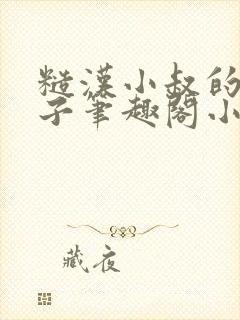 糙漢小叔的
子筆趣閣小
藏夜